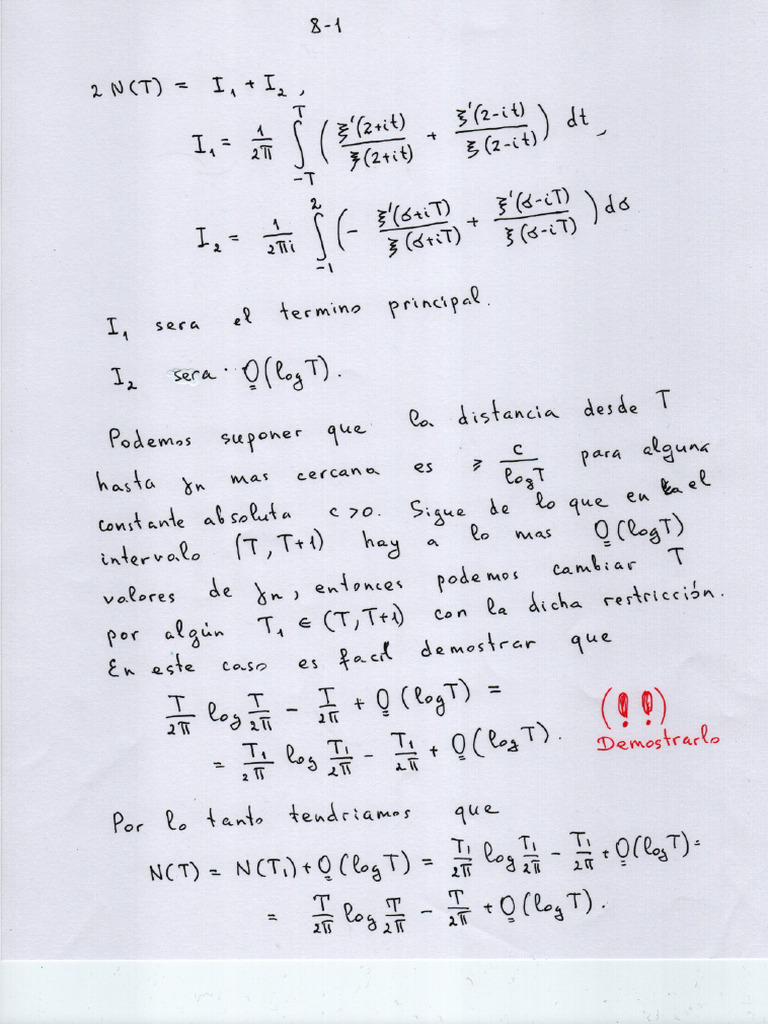 8-1
2 N(T) = I₁ + I₂ ,
I₁ = 1/2π ∫_{-T}^{T} ( ξ'(2+it)/ξ(2+it) + ξ'(2-it)/ξ(2-it) ) dt ,
I₂ = 1/2πi ∫_{-1}^{2} ( - ξ'(σ+iT)/ξ(σ+iT) + ξ'(σ-iT)/ξ(σ-iT) ) dσ
I₁ sera el termino principal.
I₂ sera O(log T).
Podemos suponer que la distancia desde T
hasta γn mas cercana es ≥ c/log T para alguna
constante absoluta c > 0. Sigue de lo que en el
intervalo (T, T+1) hay a lo mas O(log T)
valores de γn, entonces podemos cambiar T
por algún T₁ ∈ (T, T+1) con la dicha restricción.
En este caso es facil demostrar que
T/2π log T/2π - T/2π + O(log T) =
= T₁/2π log T₁/2π - T₁/2π + O(log T).
(!!)
Demostrarlo
Por lo tanto tendriamos que
N(T) = N(T₁) + O(log T) = T₁/2π log T₁/2π - T₁/2π + O(log T) =
= T/2π log T/2π - T/2π + O(log T).